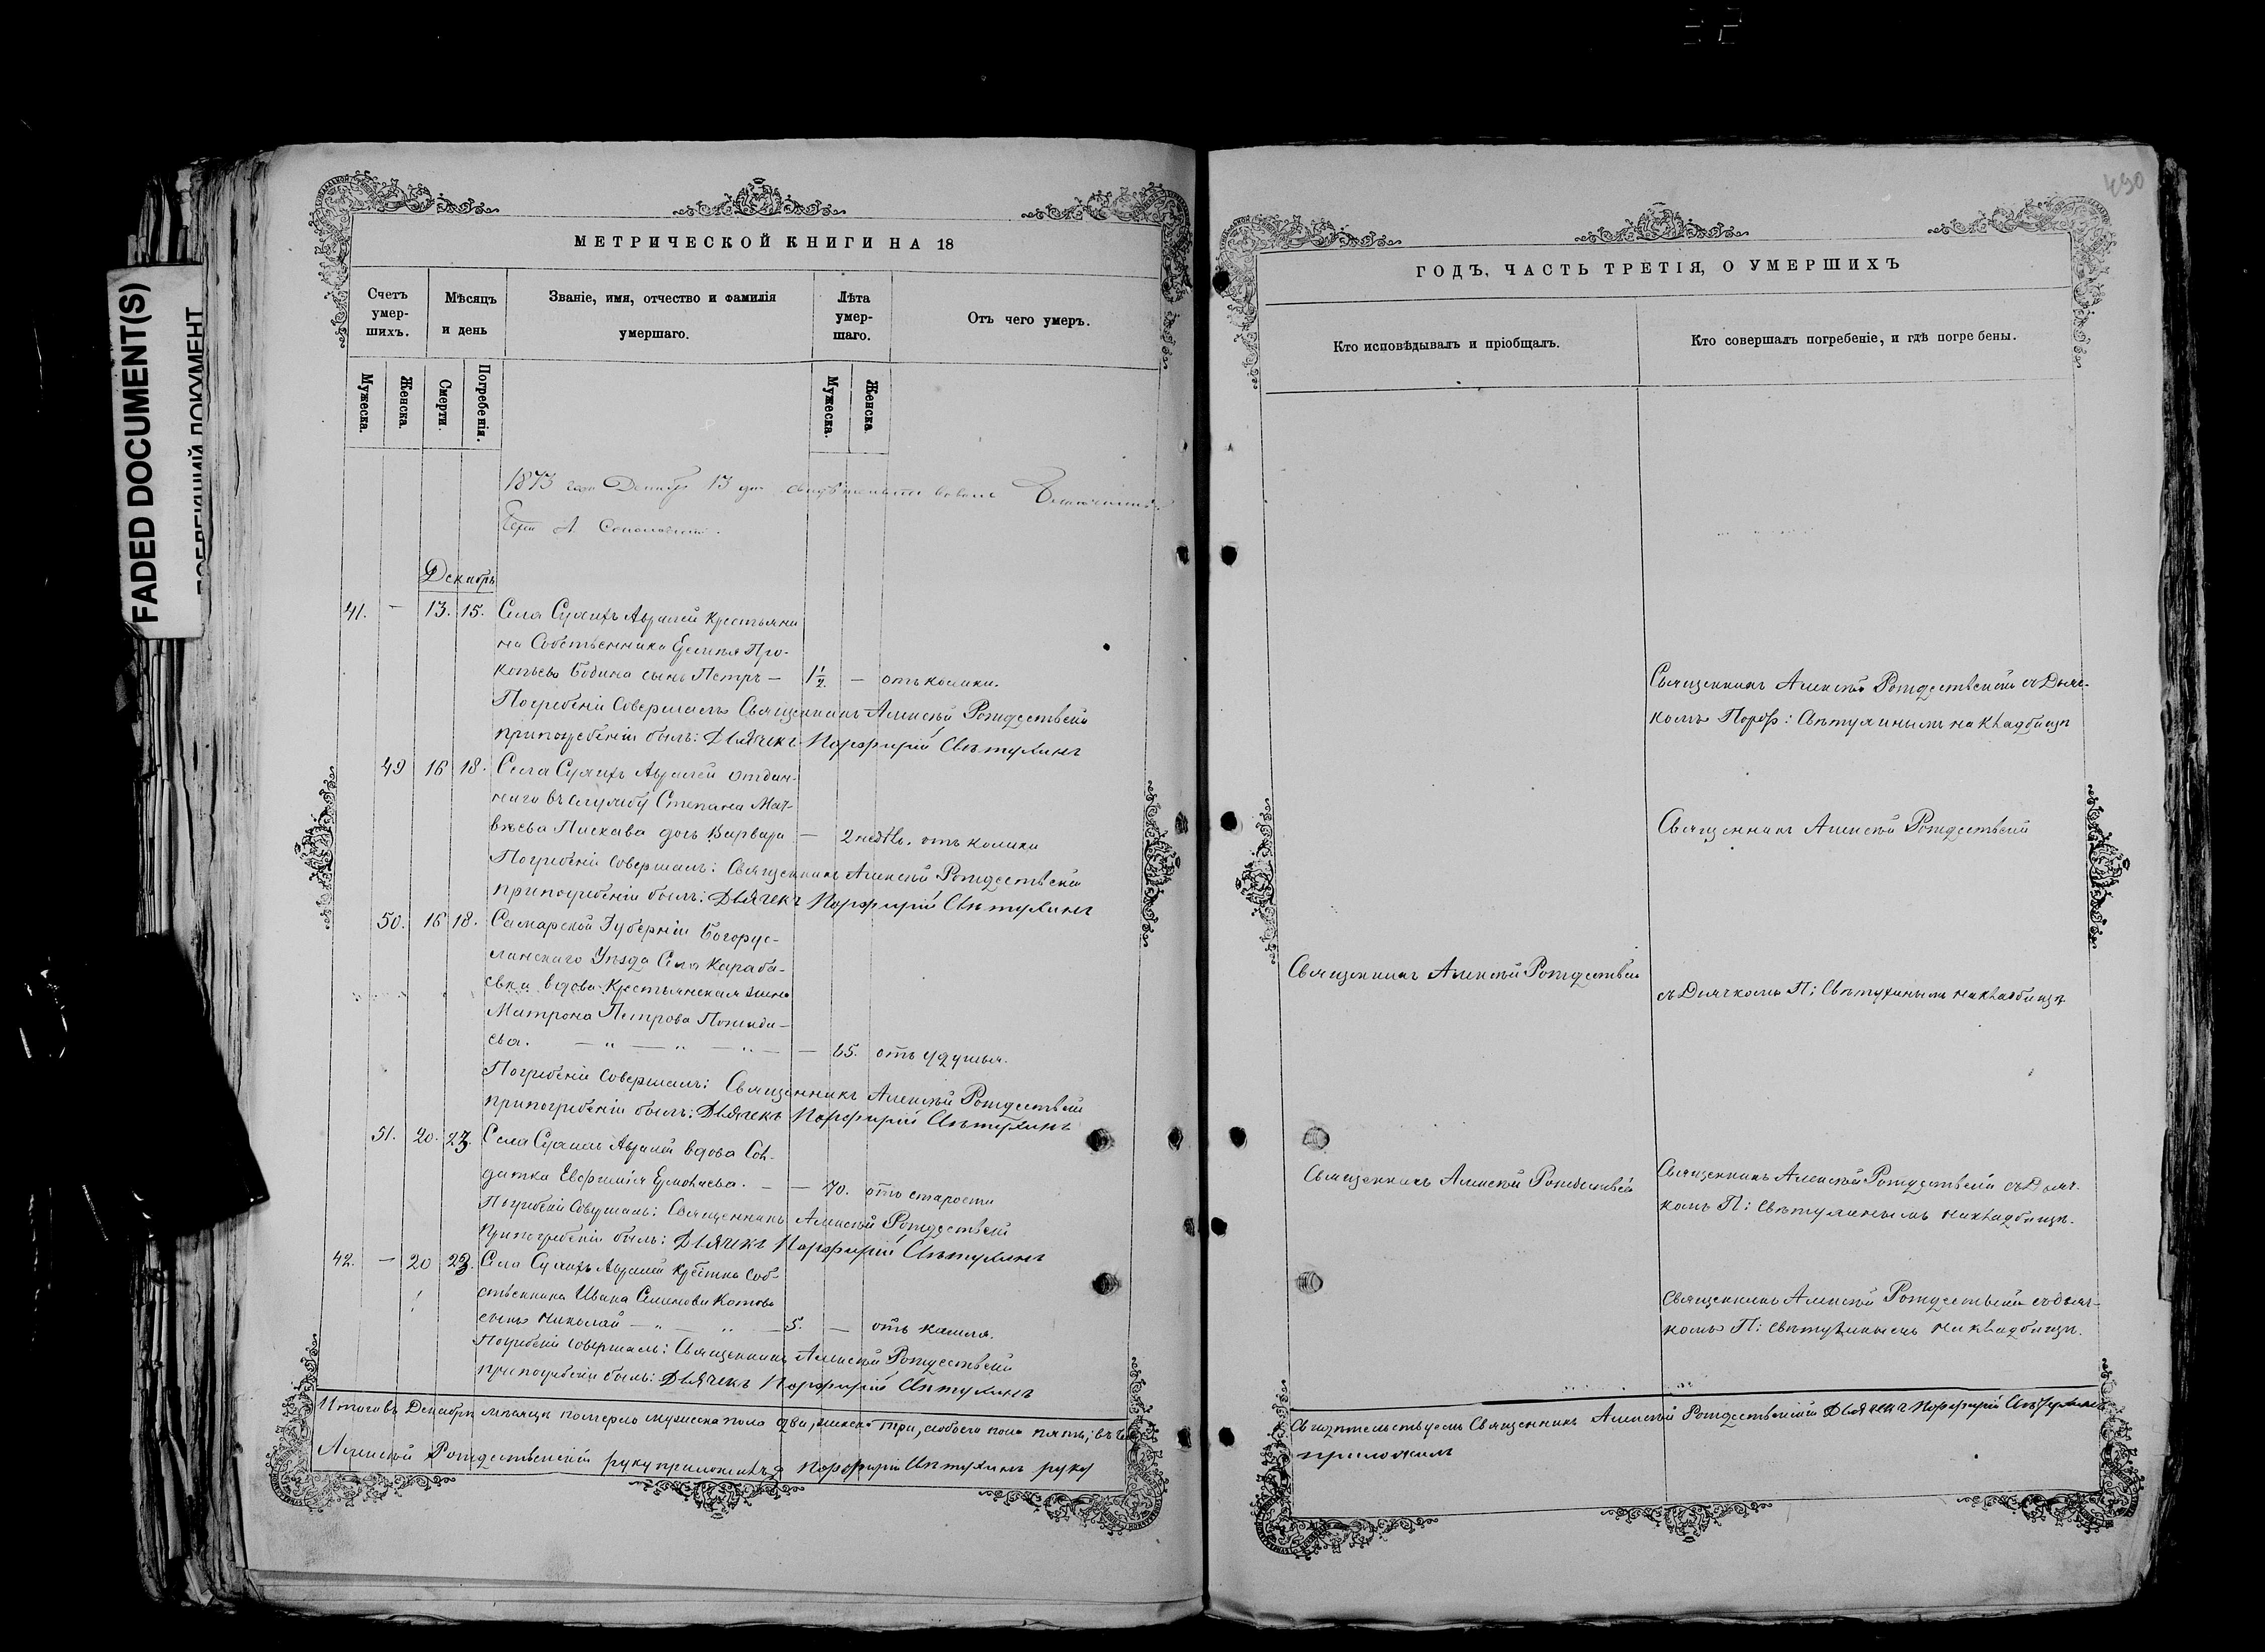 FADED DOCUMENT(S)
490
МЕТРИЧЕСКОЙ КНИГИ НА 18
Счетъ умер-
шихъ.
Мѣсяцъ
и день
Званіе, имя, отчество и фамилія
умершаго.
Лѣта
умер-
шаго.
Отъ чего умеръ.
Мужеска.
Женска.
Смерти.
Погребенія.
Мужеска.
Женска
1873 года Декабря 13 дня свидѣтельствовалъ Благочинный
А. Соколовскій.
Декабрь
41. — 13. 15. Села Авралей Крестьяни
на Собственника Про-
копьева сынъ Петръ — 1½ — отъ колики.
Погребеніе Совершалъ Священникъ Алексѣй Рождественскій
при погребеніи былъ: Дьячекъ Порфирій
49 16 18. Села Авралей отдан-
наго въ службу Степана Мат-
вѣева дочь Варвара — 2 недѣль. отъ колики
Погребеніе Совершалъ: Священникъ Алексѣй Рождественскій
при погребеніи былъ: Дьячекъ Порфирій
50. 16 18. Самарской Губерніи Богорус-
ланскаго Уѣзда Села Караба-
евки вдова Крестьянская жена
Матрона Петрова
ева. — „ — „ — „ — — 65. отъ удушья.
Погребеніе Совершалъ: Священникъ Алексѣй Рождественскій
при погребеніи былъ: Дьячекъ Порфирій
51. 20. 23. Села Авралей вдова Сол-
датка Евфимія Ермолаева. — — 70. отъ старости
Погребеніе Совершалъ: Священникъ Алексѣй Рождественскій
при погребеніи былъ: Дьячекъ Порфирій
42. — 20 23. Села Авралей Соб-
ственника Ивана Семенова Котова
сынъ Николай — „ — „ — 5. — отъ кашля.
Погребеніе Совершалъ: Священникъ Алексѣй Рождественскій
при погребеніи былъ: Дьячекъ Порфирій
Итого въ Декабрѣ мѣсяцѣ померло мужеска пола два, женска три, обоего пола пять; въ чемъ
Алексѣй Рождественскій руку приложилъ Порфирій руку
ГОДЪ, ЧАСТЬ ТРЕТІЯ, О УМЕРШИХЪ
Кто исповѣдывалъ и пріобщалъ.
Кто совершалъ погребеніе, и гдѣ погребены.
Священникъ Алексѣй Рождественскій съ Дьяч-
комъ Порф: на кладбищѣ
Священникъ Алексѣй Рождественскій
Священникъ Алексѣй Рождественскій
съ Дьячкомъ П: на кладбищѣ
Священникъ Алексѣй Рождественскій
Священникъ Алексѣй Рождественскій съ Дьяч-
комъ П: на кладбищѣ.
Священникъ Алексѣй Рождественскій съ дьяч-
комъ П: на кладбищѣ.
Свидѣтельствуемъ Священникъ Алексѣй Рождественскій Дьячекъ Порфирій
приложилъ